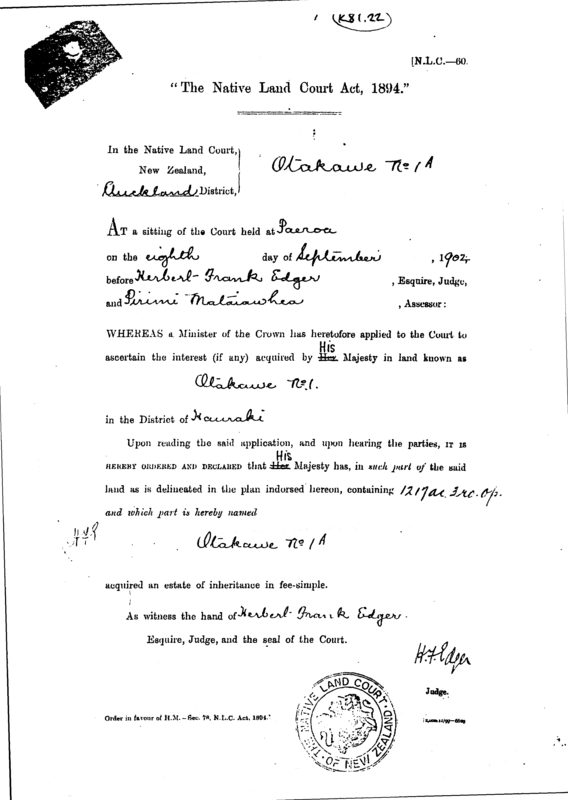 (K81.22)
[N.L.C.—60.
"The Native Land Court Act, 1894."
In the Native Land Court,
New Zealand,
Auckland District,
Otakawe No 1A
AT a sitting of the Court held at Paeroa
on the eighth day of September, 1902,
before Herbert Frank Edger, Esquire, Judge,
and Pirimi Mataiawhea, Assessor:
WHEREAS a Minister of the Crown has heretofore applied to the Court to
His
ascertain the interest (if any) acquired by Her Majesty in land known as
Otakawe No 1.
in the District of Hauraki
Upon reading the said application, and upon hearing the parties, IT IS
His
HEREBY ORDERED AND DECLARED that Her Majesty has, in such part of the said
land as is delineated in the plan indorsed hereon, containing 1217ac. 3rc. 0p.
and which part is hereby named
Otakawe No 1A
acquired an estate of inheritance in fee-simple.
As witness the hand of Herbert Frank Edger.
Esquire, Judge, and the seal of the Court.
H.F. Edger
Judge.
THE NATIVE LAND COURT OF NEW ZEALAND
Order in favour of H.M.—Sec. 78, N.L.C. Act, 1894.